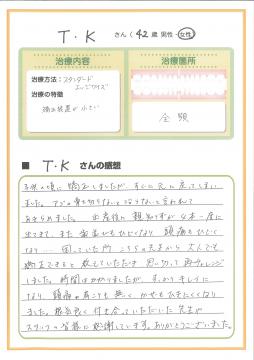 T・K さん（42歳 男性・女性）
治療内容
治療箇所
治療方法：スタンダード
エッジワイズ
治療の特徴
矯正装置が小さい
全顎
■ T・K さんの感想
子供の頃に矯正しましたが、すぐに元に戻ってしまい
ました。アゴの骨を切らないとならないと言われて
あきらめました。出産後に親知らずが4本一度に
出てきて、また歯並びがひどくなり 頭痛もひどく
なり… 困っていた所 こちらの先生から大人でも
矯正できると教えていただき 思い切って再チャレンジ
しました。時間はかかりましたが、すっかりキレイに
なり、頭痛や肩こりも無く、かぜもひきにくくなり
ました。根気良く付き合っていただいた先生や
スタッフの皆様に感謝しています。ありがとうございました。